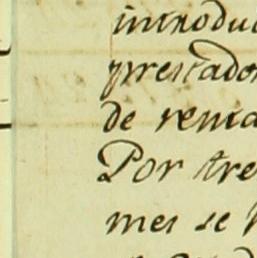 introduc
prestador
de renta
Por tre
mes se